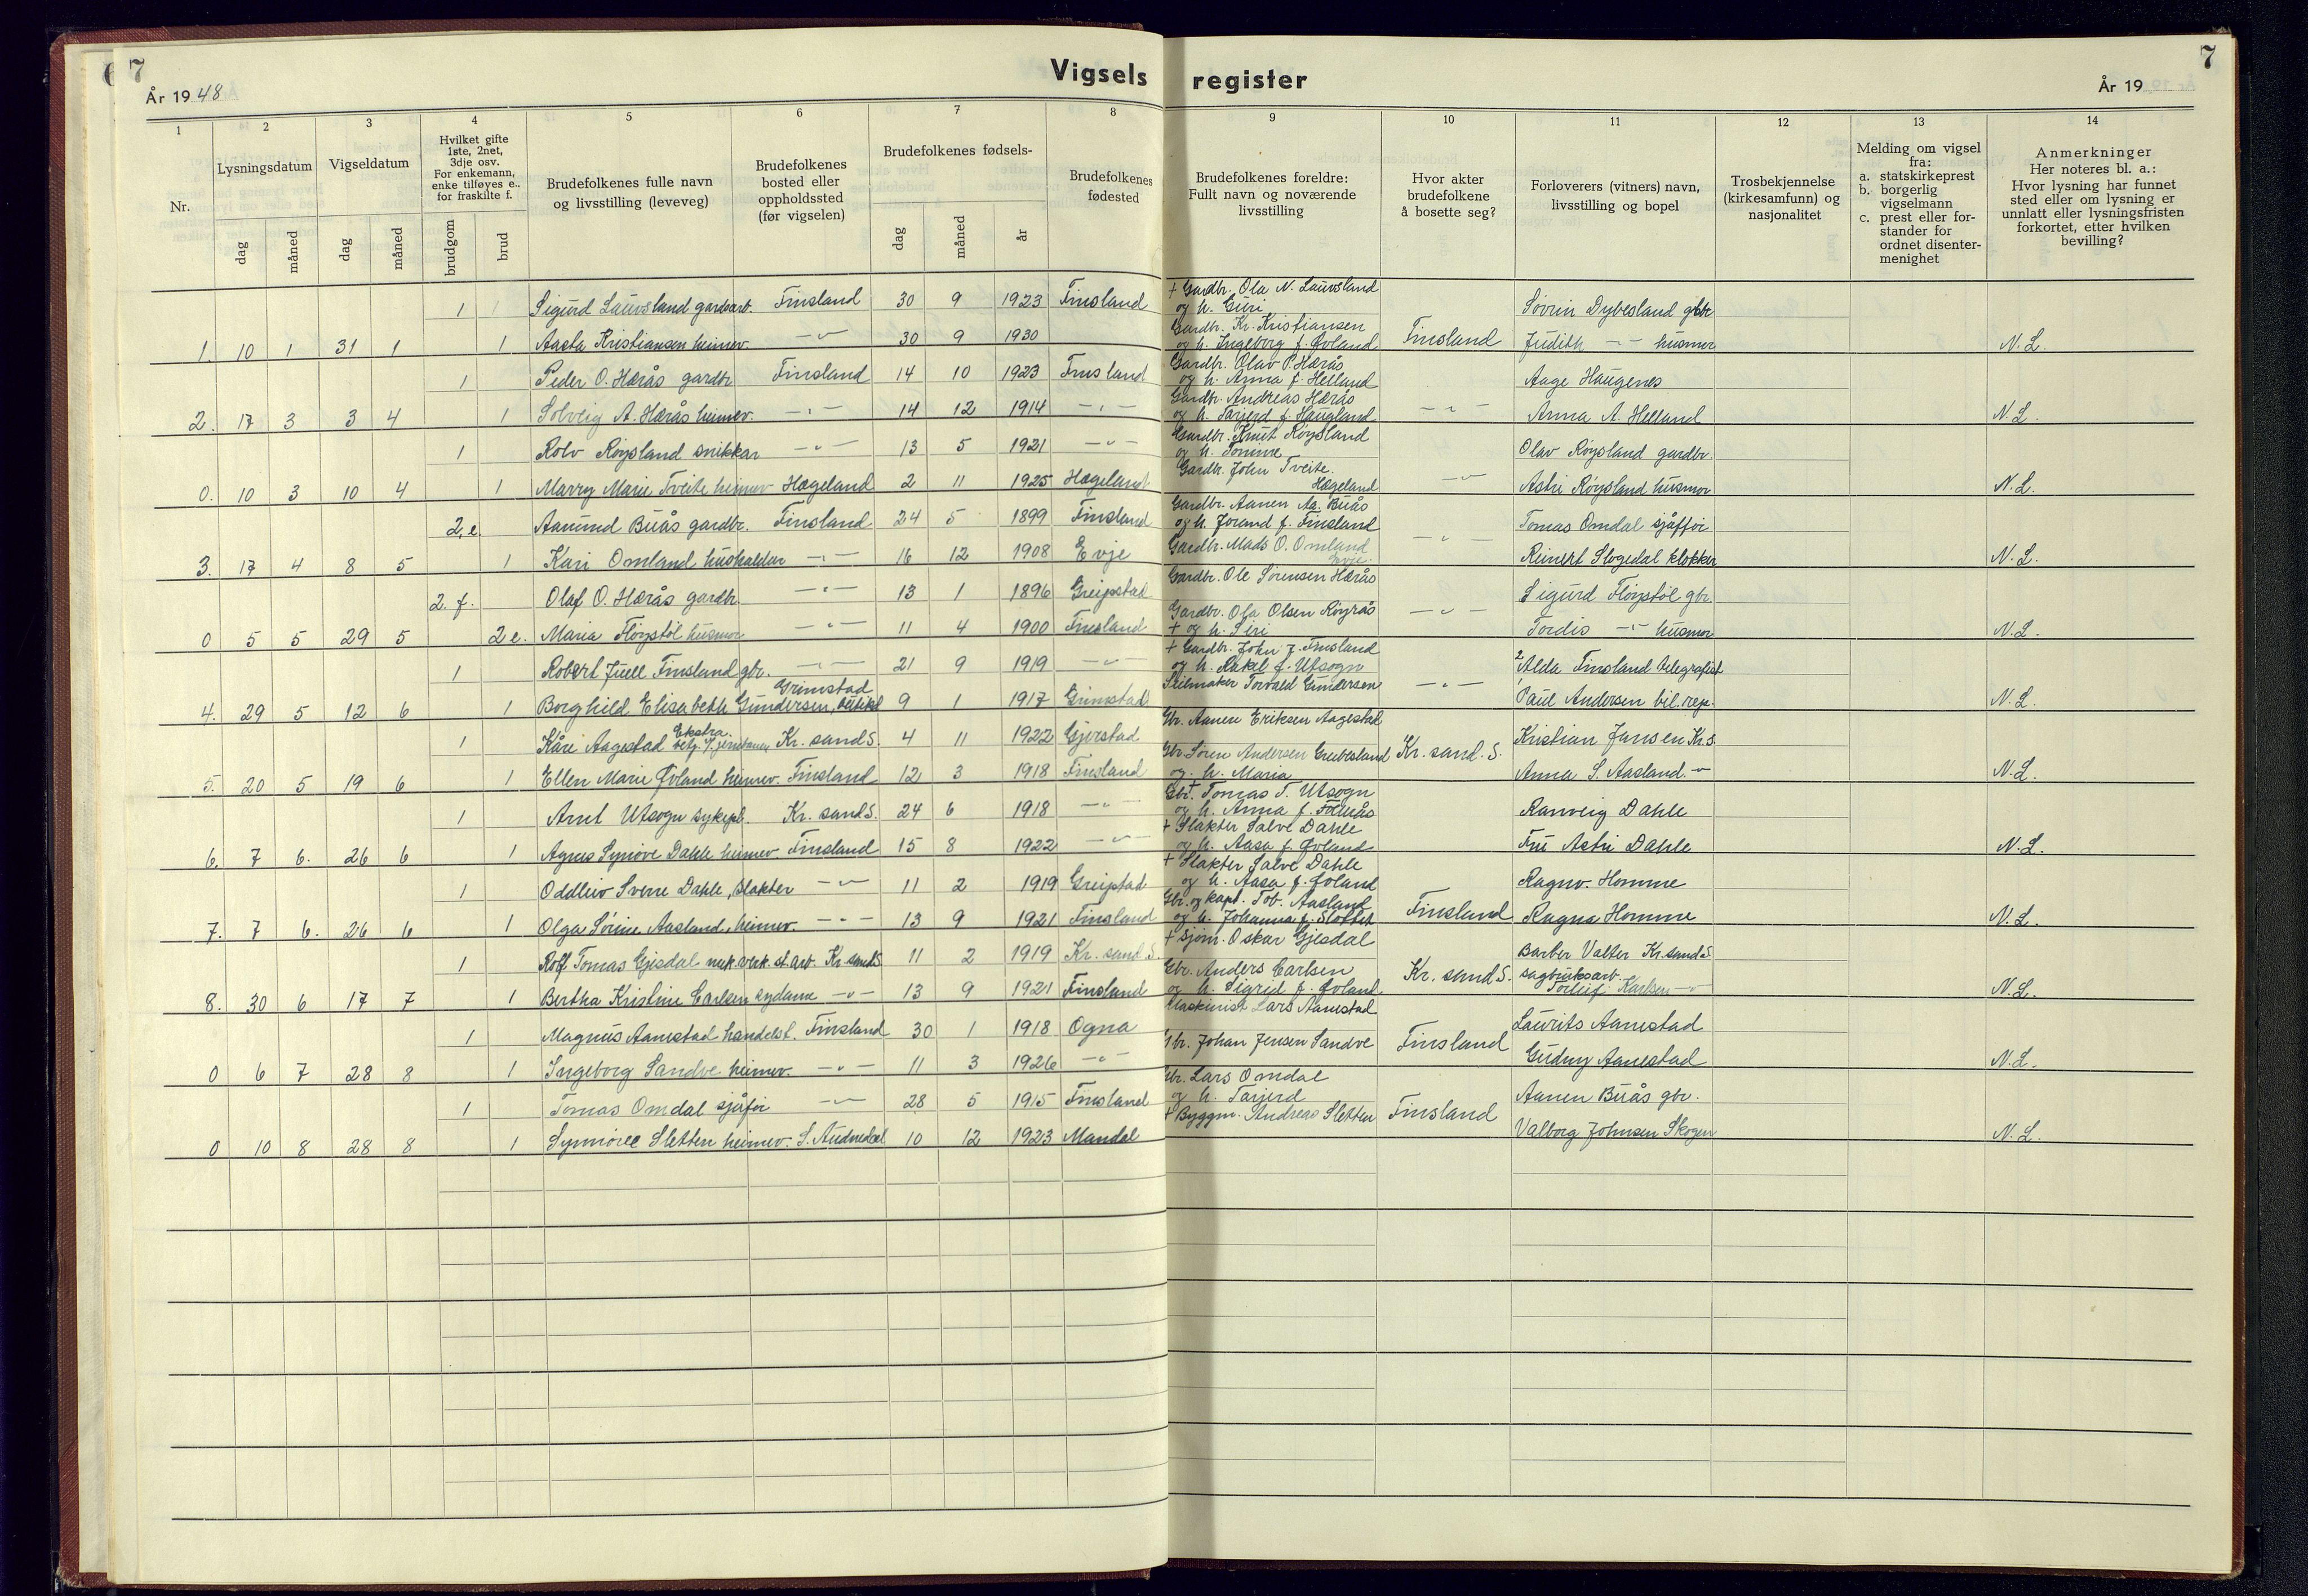 7
Vigsels register
7
År 1948
År 19
1
2
3
4
5
6
7
8
9
10
11
12
13
14
Nr.
Lysningsdatum
dag
måned
Vigseldatum
dag
måned
Hvilket gifte
1ste, 2net,
3dje osv.
For enkemann,
enke tilføyes e..
for fraskilte f.
brudgom
brud
Brudefolkenes fulle navn
og livsstilling (leveveg)
Brudefolkenes
bosted eller
oppholdssted
(før vigselen)
Brudefolkenes fødsels-
dag
måned
år
Brudefolkenes
fødested
Brudefolkenes foreldre:
Fullt navn og noværende
livsstilling
Hvor akter
brudefolkene
å bosette seg?
Forloverers (vitners) navn,
livsstilling og bopel
Trosbekjennelse
(kirkesamfunn) og
nasjonalitet
Melding om vigsel
fra:
a. statskirkeprest
b. borgerlig
vigselmann
c. prest eller for-
stander for
ordnet disenter-
menighet
Anmerkninger
Her noteres bl. a.:
Hvor lysning har funnet
sted eller om lysning er
unnlatt eller lysningsfristen
forkortet, etter hvilken
bevilling?
1 Sigurd Lauvsland gardsarb. Finsland 30 9 1923 Finsland + Gardbr. Ola N. Lauvsland og h. Guri Sørrin Dybesland gbr
1. 10 1 31 1 1 Aasta Kristiansen heimev. -"- 30 9 1930 Gardbr. Kr. Kristiansen og h. Ingeborg f. Øvland Finsland Judith -"- husmor N.L.
1 Peder O. Hærås gardbr. Finsland 14 10 1923 Finsland Gardbr. Olav P. Hærås og h. Anna f. Helland Aage Haugenes
2. 17 3 3 4 1 Solveig A. Hærås heimev. -"- 14 12 1914 -"- Gardbr. Andreas Hærås og h. Tarjerd f. Haugland -"- Anna A. Helland N.L.
1 Rolv Røysland snikkar -"- 13 5 1921 -"- Gardbr. Knut Røysland og h. Tomine Olav Røysland gardbr.
0. 10 3 10 4 1 Marry Marie Tveite heimev Hægeland 2 11 1925 Hægeland Gardbr. John Tveite. Hægeland -"- Astri Røysland husmor N.L.
2,e Aanund Buås gardbr. Finsland 24 5 1899 Finsland Gardbr. Aanen Aa. Buås og h. Jorund f. Finsland Tomas Omdal sjåffør
3. 17 4 8 5 1 Kari Omland husholdar -"- 16 12 1908 Evje Gardbr. Mads O. Omland Evje -"- Reinert Slogedal klokker N.L.
2. f. Olaf O. Hærås gardbr. -"- 13 1 1896 Greipstad Gardbr. Ole Sørensen Hærås Sigurd Fløystøl gbr.
0 5 5 29 5 2e. Maria Fløystøl husmor -"- 11 4 1900 Finsland Gardbr. Ola Olsen Røyrås + og h. Siri -"- Tordis -"- husmor N.L.
1 Robert Juell Finsland gbr. -"- 21 9 1919 -"- + Gardbr. John J. Finsland og h. Rakel f. Utsogn 2 Alda Finsland telegrafist
4. 29 5 12 6 1 Borghild Elisabeth Gundersen, Grimstad 9 1 1917 Grimstad Seilmaker Torvald Gundersen -"- 1 Paul Andersen bil.rep. N.L.
1 Kåre Aagestad Ekstra. betj. v/ jernbanen Kr. sand S. 4 11 1922 Gjerstad Gbr. Aanen Eriksen Aagestad Kristian Jansen Kr.S.
5. 20 5 19 6 1 Ellen Marie Øvland heimev. Finsland 12 3 1918 Finsland Gbr. Søren Andersen Greibesland og h. Maria Kr. sand. S. Anna S. Aasland -"- N.L.
1 Arnt Utsogn sykepl. Kr. sand S. 24 6 1918 -"- Gbr. Tomas T. Utsogn og h. Anna f. Foruås Ranveig Dahle
6. 7 6. 26 6 1 Agnes Synøve Dahle heimev. Finsland 15 8 1922 -"- + Slakter Salve Dahle og h. Aasa f. Øvland Fru Astri Dahle N.L.
1 Oddleiv Sverre Dahle, slakter -"- 11 2 1919 Greipstad + Slakter Salve Dahle og h. Aasa f. Øvland Ragnv. Homme
7. 7 6. 26 6 1 Olga Sørine Aasland, heimev. -"- 13 9 1921 Finsland Gbr. og kapt. Tob. Aasland og h. Johanna f. Slottet Finsland Ragna Homme N.L.
1 Rolf Tomas Gjesdal mek.verk.st.arb. Kr. sand S 11 2 1919 Kr. sand S. + Sjøm. Oskar Gjesdal Barber Valter Kr.sand S.
8. 30 6 17 7 1 Bertha Kristine Carlsen sydame -"- 13 9 1921 Finsland Gbr. Anders Carlsen og h. Sigrid f. Øvland Kr. sand S. sagbruksarb. Torleif Karlsen -"- N.L.
1 Magnus Aanestad handelst. Finsland 30 1 1918 Ogna Maskinist Lars Aanestad Laurits Aanestad
0 6 7 28 8 1 Ingeborg Sandve heimev. -"- 11 3 1926 -"- Gbr. Johan Jensen Sandve Finsland Gudny Aanestad N.L.
1 Tomas Omdal sjåfør -"- 28 5 1915 Finsland Gbr. Lars Omdal og h. Tarjerd Aanen Buås gbr.
0 10 8 28 8 1 Synnøve Sletten heimev. S. Audnedal 10 12 1923 Mandal + Byggm. Andreas Sletten Finsland Valborg Johnsen Skogen N.L.